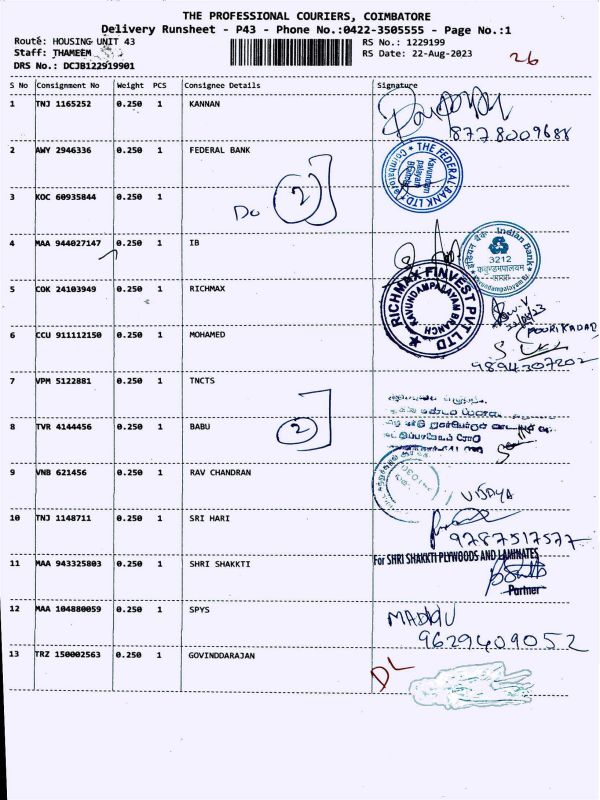 THE PROFESSIONAL COURIERS, COIMBATORE
Delivery Runsheet - P43 - Phone No.:0422-3505555 - Page No.:1
Route: HOUSING UNIT 43 RS No.: 1229199
Staff: THAMEEM RS Date: 22-Aug-2023
DRS No.: DCJB122919901
26
S No Consignment No Weight PCS Consignee Details Signature
1 TNJ 1165252 0.250 1 KANNAN
8778009688
2 AWY 2946336 0.250 1 FEDERAL BANK
THE FEDERAL BANK LTD
Coimbatore
3 KOC 60935844 0.250 1
Do 2
4 MAA 944027147 0.250 1 IB
Indian Bank
3212
5 COK 24103949 0.250 1 RICHMAX
RICHMAX FINVEST PVT LTD
KAVUNDAMPALAYAM BRANCH
6 CCU 911112150 0.250 1 MOHAMED
9894307202
7 VPM 5122881 0.250 1 TNCTS
8 TVR 4144456 0.250 1 BABU
2
9 VNB 621456 0.250 1 RAV CHANDRAN
10 TNJ 1148711 0.250 1 SRI HARI
9787517577
11 MAA 943325803 0.250 1 SHRI SHAKKTI
For SHRI SHAKKTI PLYWOODS AND LAMINATES
Partner
12 MAA 104880059 0.250 1 SPYS
9629409052
13 TRZ 150002563 0.250 1 GOVINDDARAJAN
DL